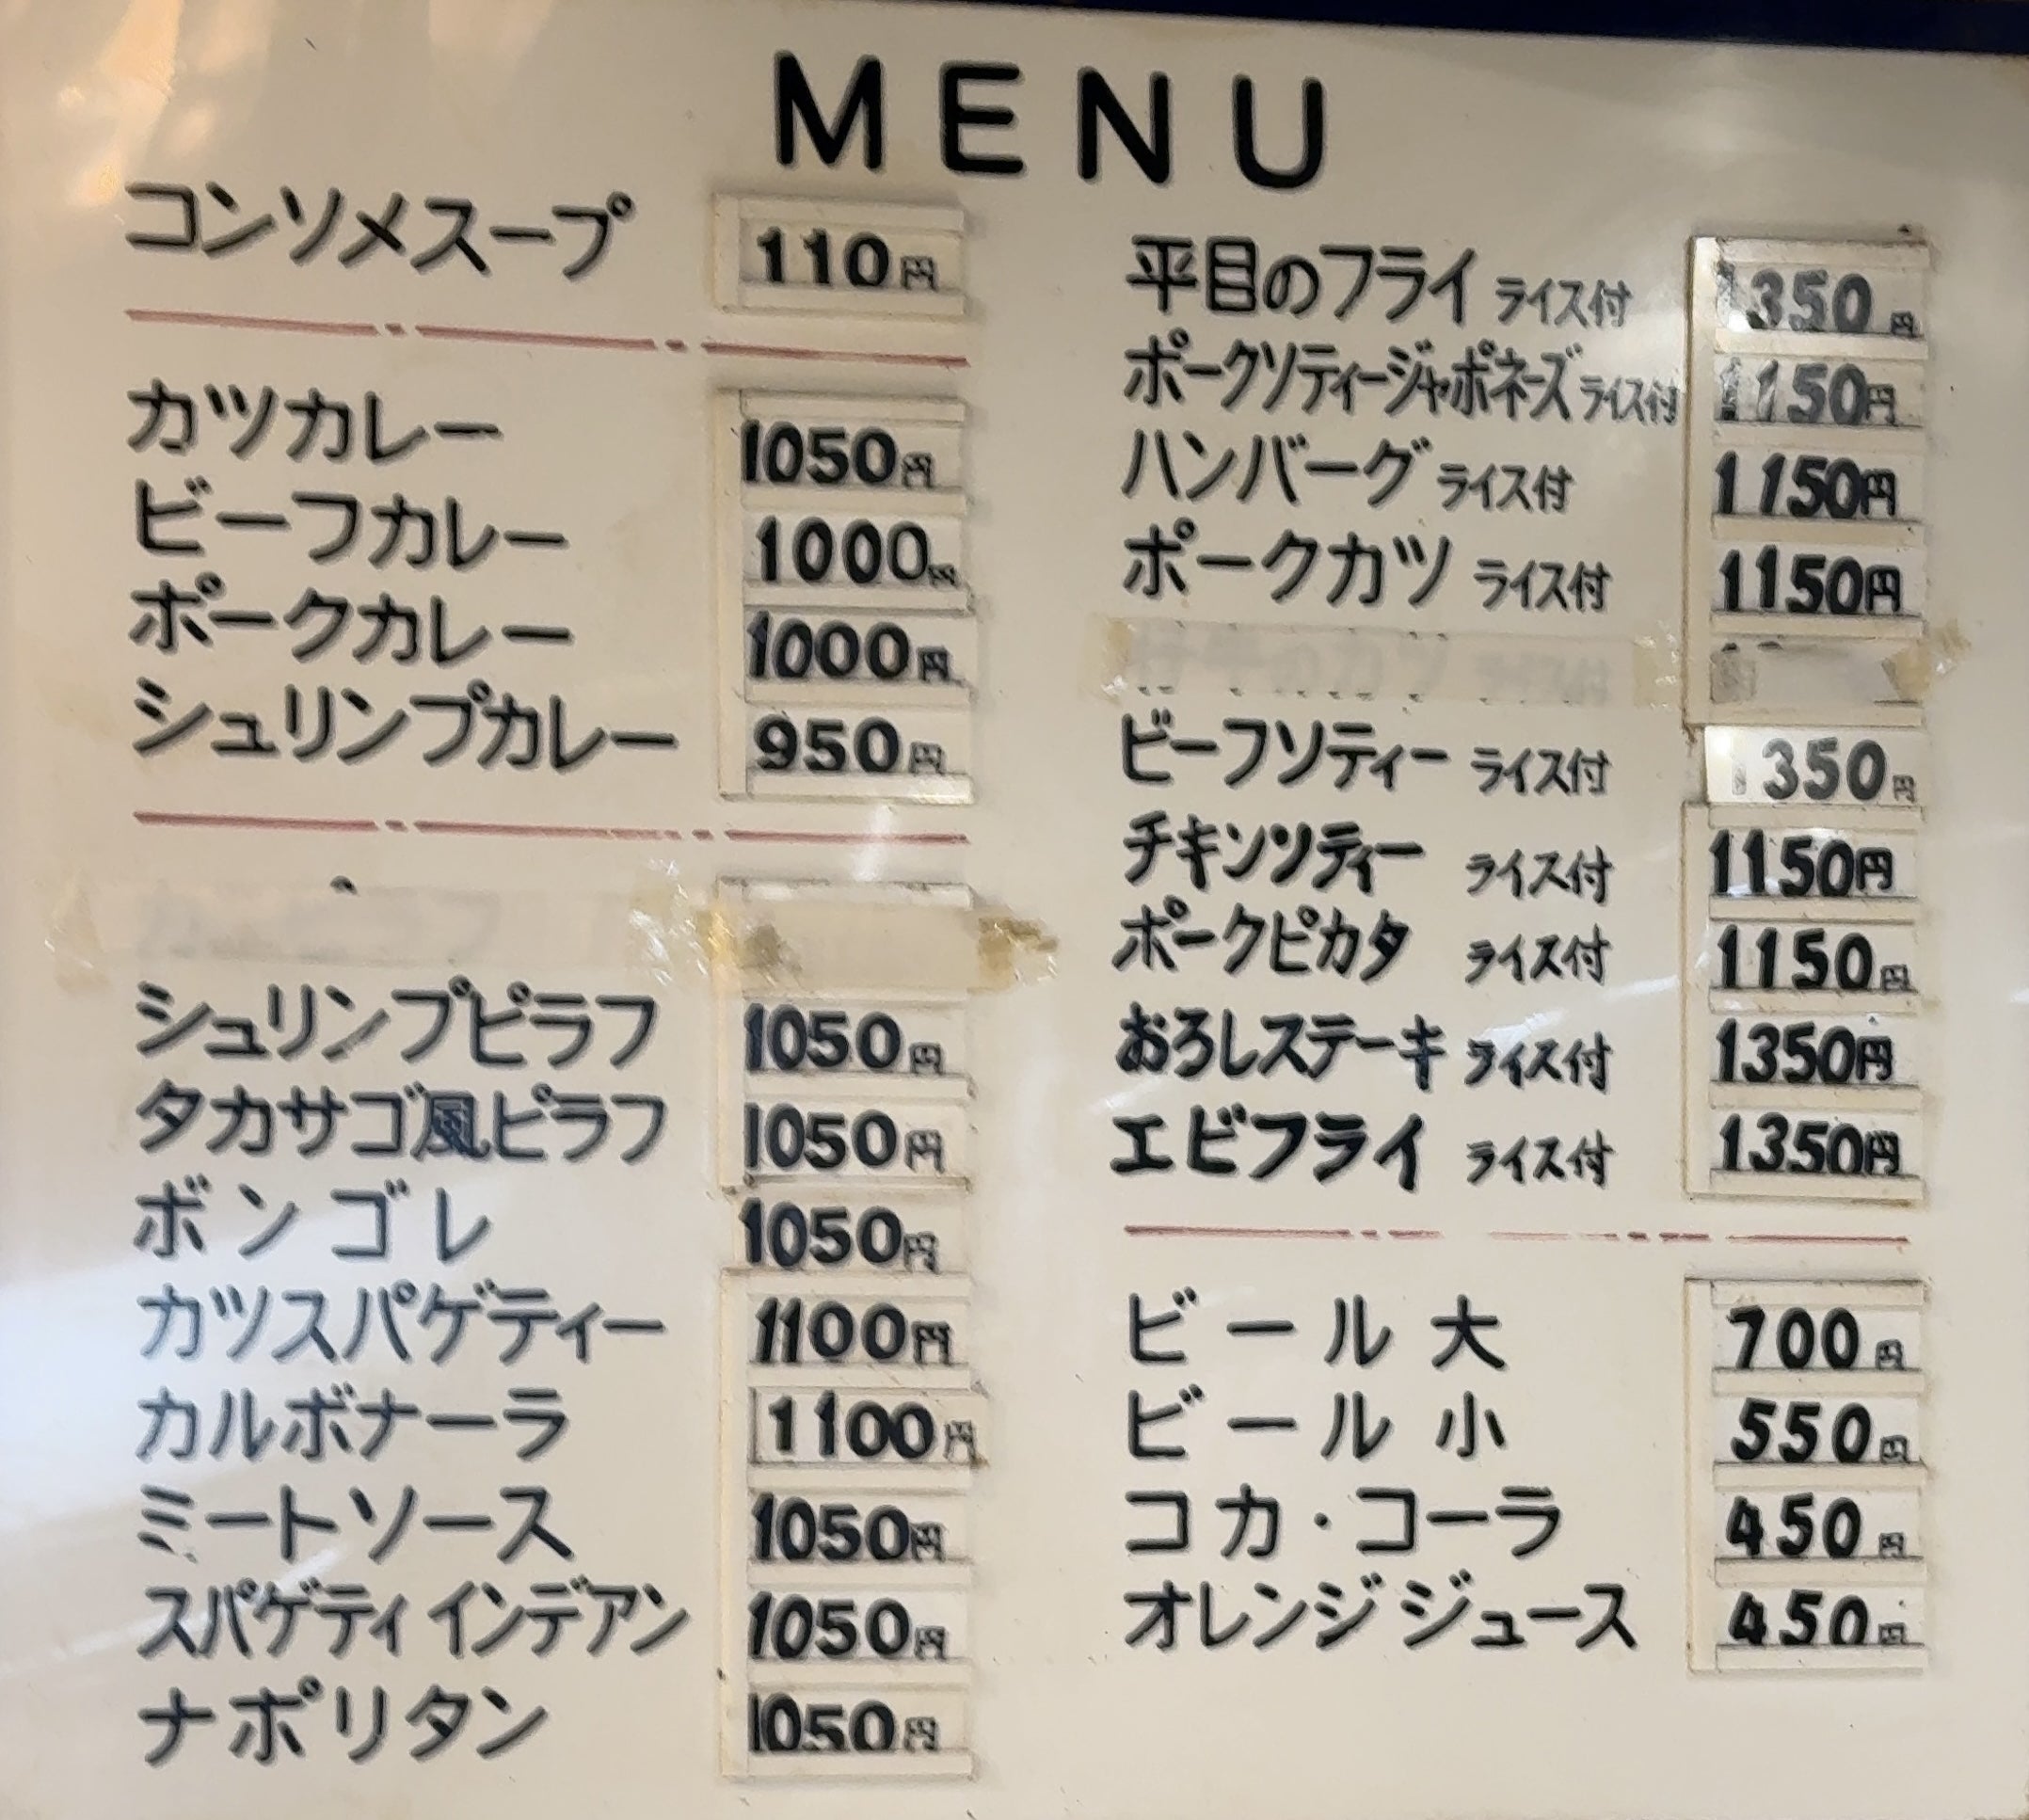 MENU
コンソメスープ 110円
カツカレー 1050円
ビーフカレー 1000円
ポークカレー 1000円
シュリンプカレー 950円
シュリンプピラフ 1050円
タカサゴ風ピラフ 1050円
ボンゴレ 1050円
カツスパゲティー 1100円
カルボナーラ 1100円
ミートソース 1050円
スパゲティインデアン 1050円
ナポリタン 1050円
平目のフライ ライス付 1350円
ポークソティージャポネーズ ライス付 1150円
ハンバーグ ライス付 1150円
ポークカツ ライス付 1150円
ビーフソティー ライス付 1350円
チキンソティー ライス付 1150円
ポークピカタ ライス付 1150円
おろしステーキ ライス付 1350円
エビフライ ライス付 1350円
ビール 大 700円
ビール 小 550円
コカ・コーラ 450円
オレンジジュース 450円